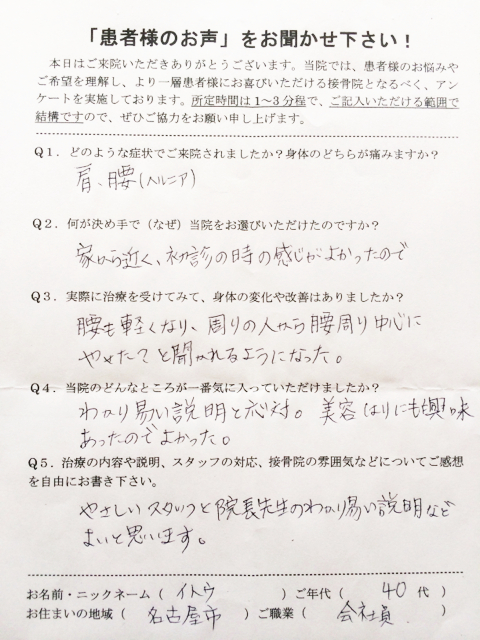 「患者様のお声」をお聞かせ下さい！
本日はご来院いただきありがとうございます。当院では、患者様のお悩みや
ご希望を理解し、より一層患者様にお喜びいただける接骨院となるべく、アン
ケートを実施しております。所定時間は1～3分程で、ご記入いただける範囲で
結構ですので、ぜひご協力をお願い申し上げます。
Q1．どのような症状でご来院されましたか？身体のどちらが痛みますか？
肩、腰(ヘルニア)
Q2．何が決め手で（なぜ）当院をお選びいただけたのですか？
家から近く、初診の時の感じがよかったので
Q3．実際に治療を受けてみて、身体の変化や改善はありましたか？
腰も軽くなり、周りの人から腰周り中心に
やせた？と聞かれるようになった。
Q4．当院のどんなところが一番気に入っていただけましたか？
わかり易い説明と応対。美容はりにも興味
あったのでよかった。
Q5．治療の内容や説明、スタッフの対応、接骨院の雰囲気などについてご感想
を自由にお書き下さい。
やさしいスタッフと院長先生のわかり易い説明など
よいと思います。
お名前・ニックネーム（ イトウ ）ご年代（ 40 代 ）
お住まいの地域（ 名古屋市 ）ご職業（ 会社員 ）